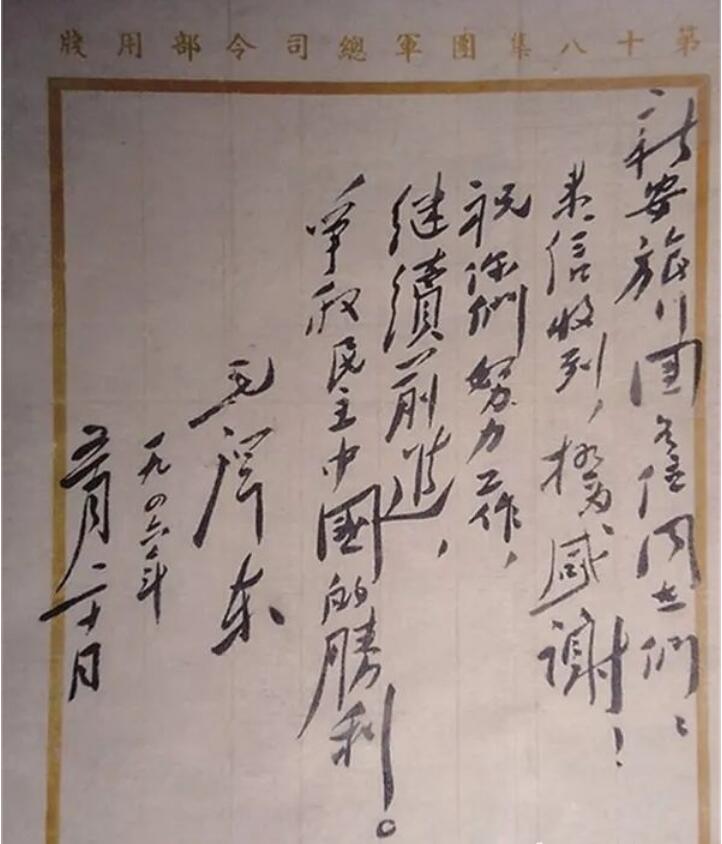 第十八集團軍總司令部用牋
新安旅行团各位同志們：
来信收到，极为感谢！
祝你們努力工作，
继續前进，
争取民主中國的勝利。
毛澤东
一九四六年
五月二十日